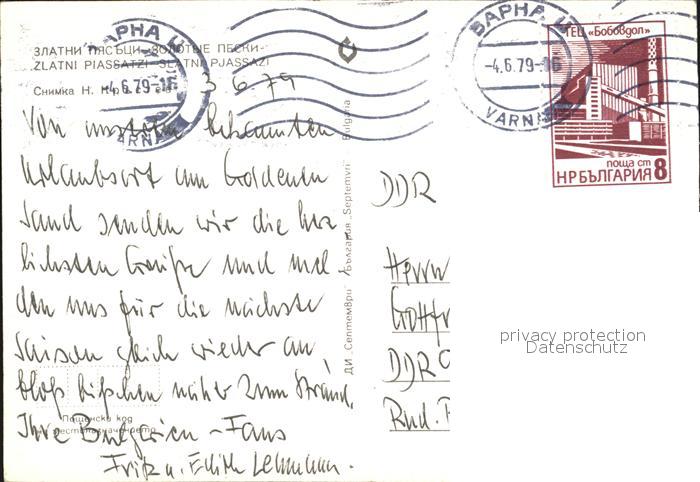 ЗЛАТНИ ПЯСЪЦИ - ЗОЛОТЫЕ ПЕСКИ -
ZLATNI PIASSATZI - SLATNI PJASSAZI
Снимка Н.
3.6.79
Von unserem bekannten
Urlaubsort am Goldenen
Sand senden wir die herz
lichsten Grüße und mel-
den uns für die nächste
Saison gleich wieder an,
bloß bißchen näher zum Strand.
Пощенски код
местоназначението
Ihre Bulgarien-Fans
Fritz u. Edith Lehmann.
ДИ „Септември" България „Septemvri" Bulgaria
ВАРНА Ц
-4.6.79-16
VARNA
ВАРНА Ц
-4.6.79-16
VARNA
ТЕЦ „Бобовдол"
поща ст 8
НР БЪЛГАРИЯ
DDR
Herrn
Gottfr
DDR
Rud.
privacy protection
Datenschutz